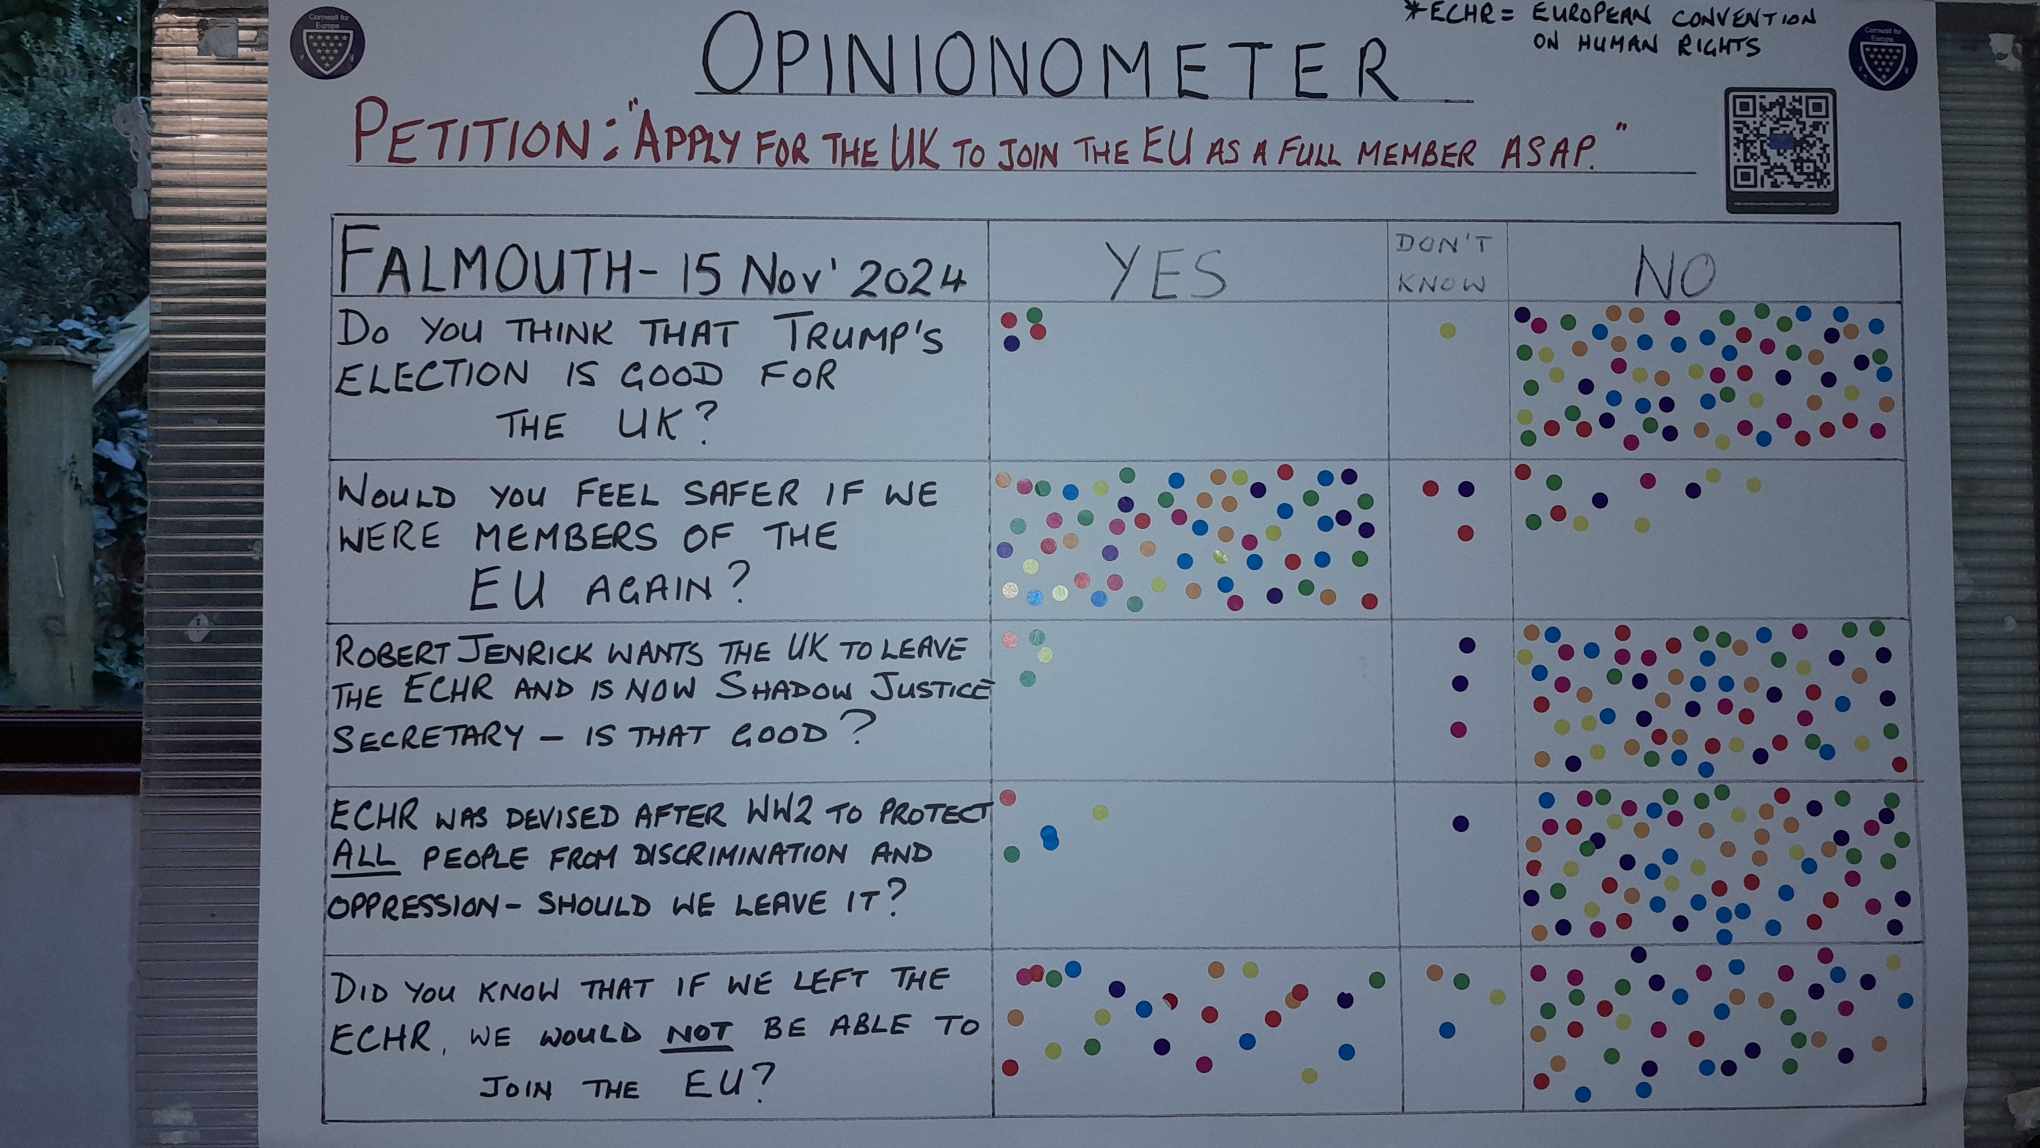 Cornwall for
Europe
OPINIONOMETER
*ECHR = EUROPEAN CONVENTION
ON HUMAN RIGHTS
Cornwall for
Europe
PETITION: "APPLY FOR THE UK TO JOIN THE EU AS A FULL MEMBER ASAP."
FALMOUTH - 15 NOV' 2024
YES
DON'T
KNOW
NO
DO YOU THINK THAT TRUMP'S
ELECTION IS GOOD FOR
THE UK?
WOULD YOU FEEL SAFER IF WE
WERE MEMBERS OF THE
EU AGAIN?
ROBERT JENRICK WANTS THE UK TO LEAVE
THE ECHR AND IS NOW SHADOW JUSTICE
SECRETARY - IS THAT GOOD?
ECHR WAS DEVISED AFTER WW2 TO PROTECT
ALL PEOPLE FROM DISCRIMINATION AND
OPPRESSION - SHOULD WE LEAVE IT?
DID YOU KNOW THAT IF WE LEFT THE
ECHR, WE WOULD NOT BE ABLE TO
JOIN THE EU?